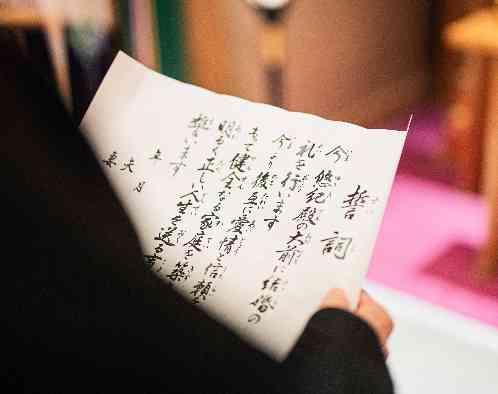 誓詞
今悠紀殿の大前に結婚の
礼を行います
今より後互に愛情と信頼を
もて健全な家庭を築
明るく正しい人生を送る
誓います
年 月
夫
妻